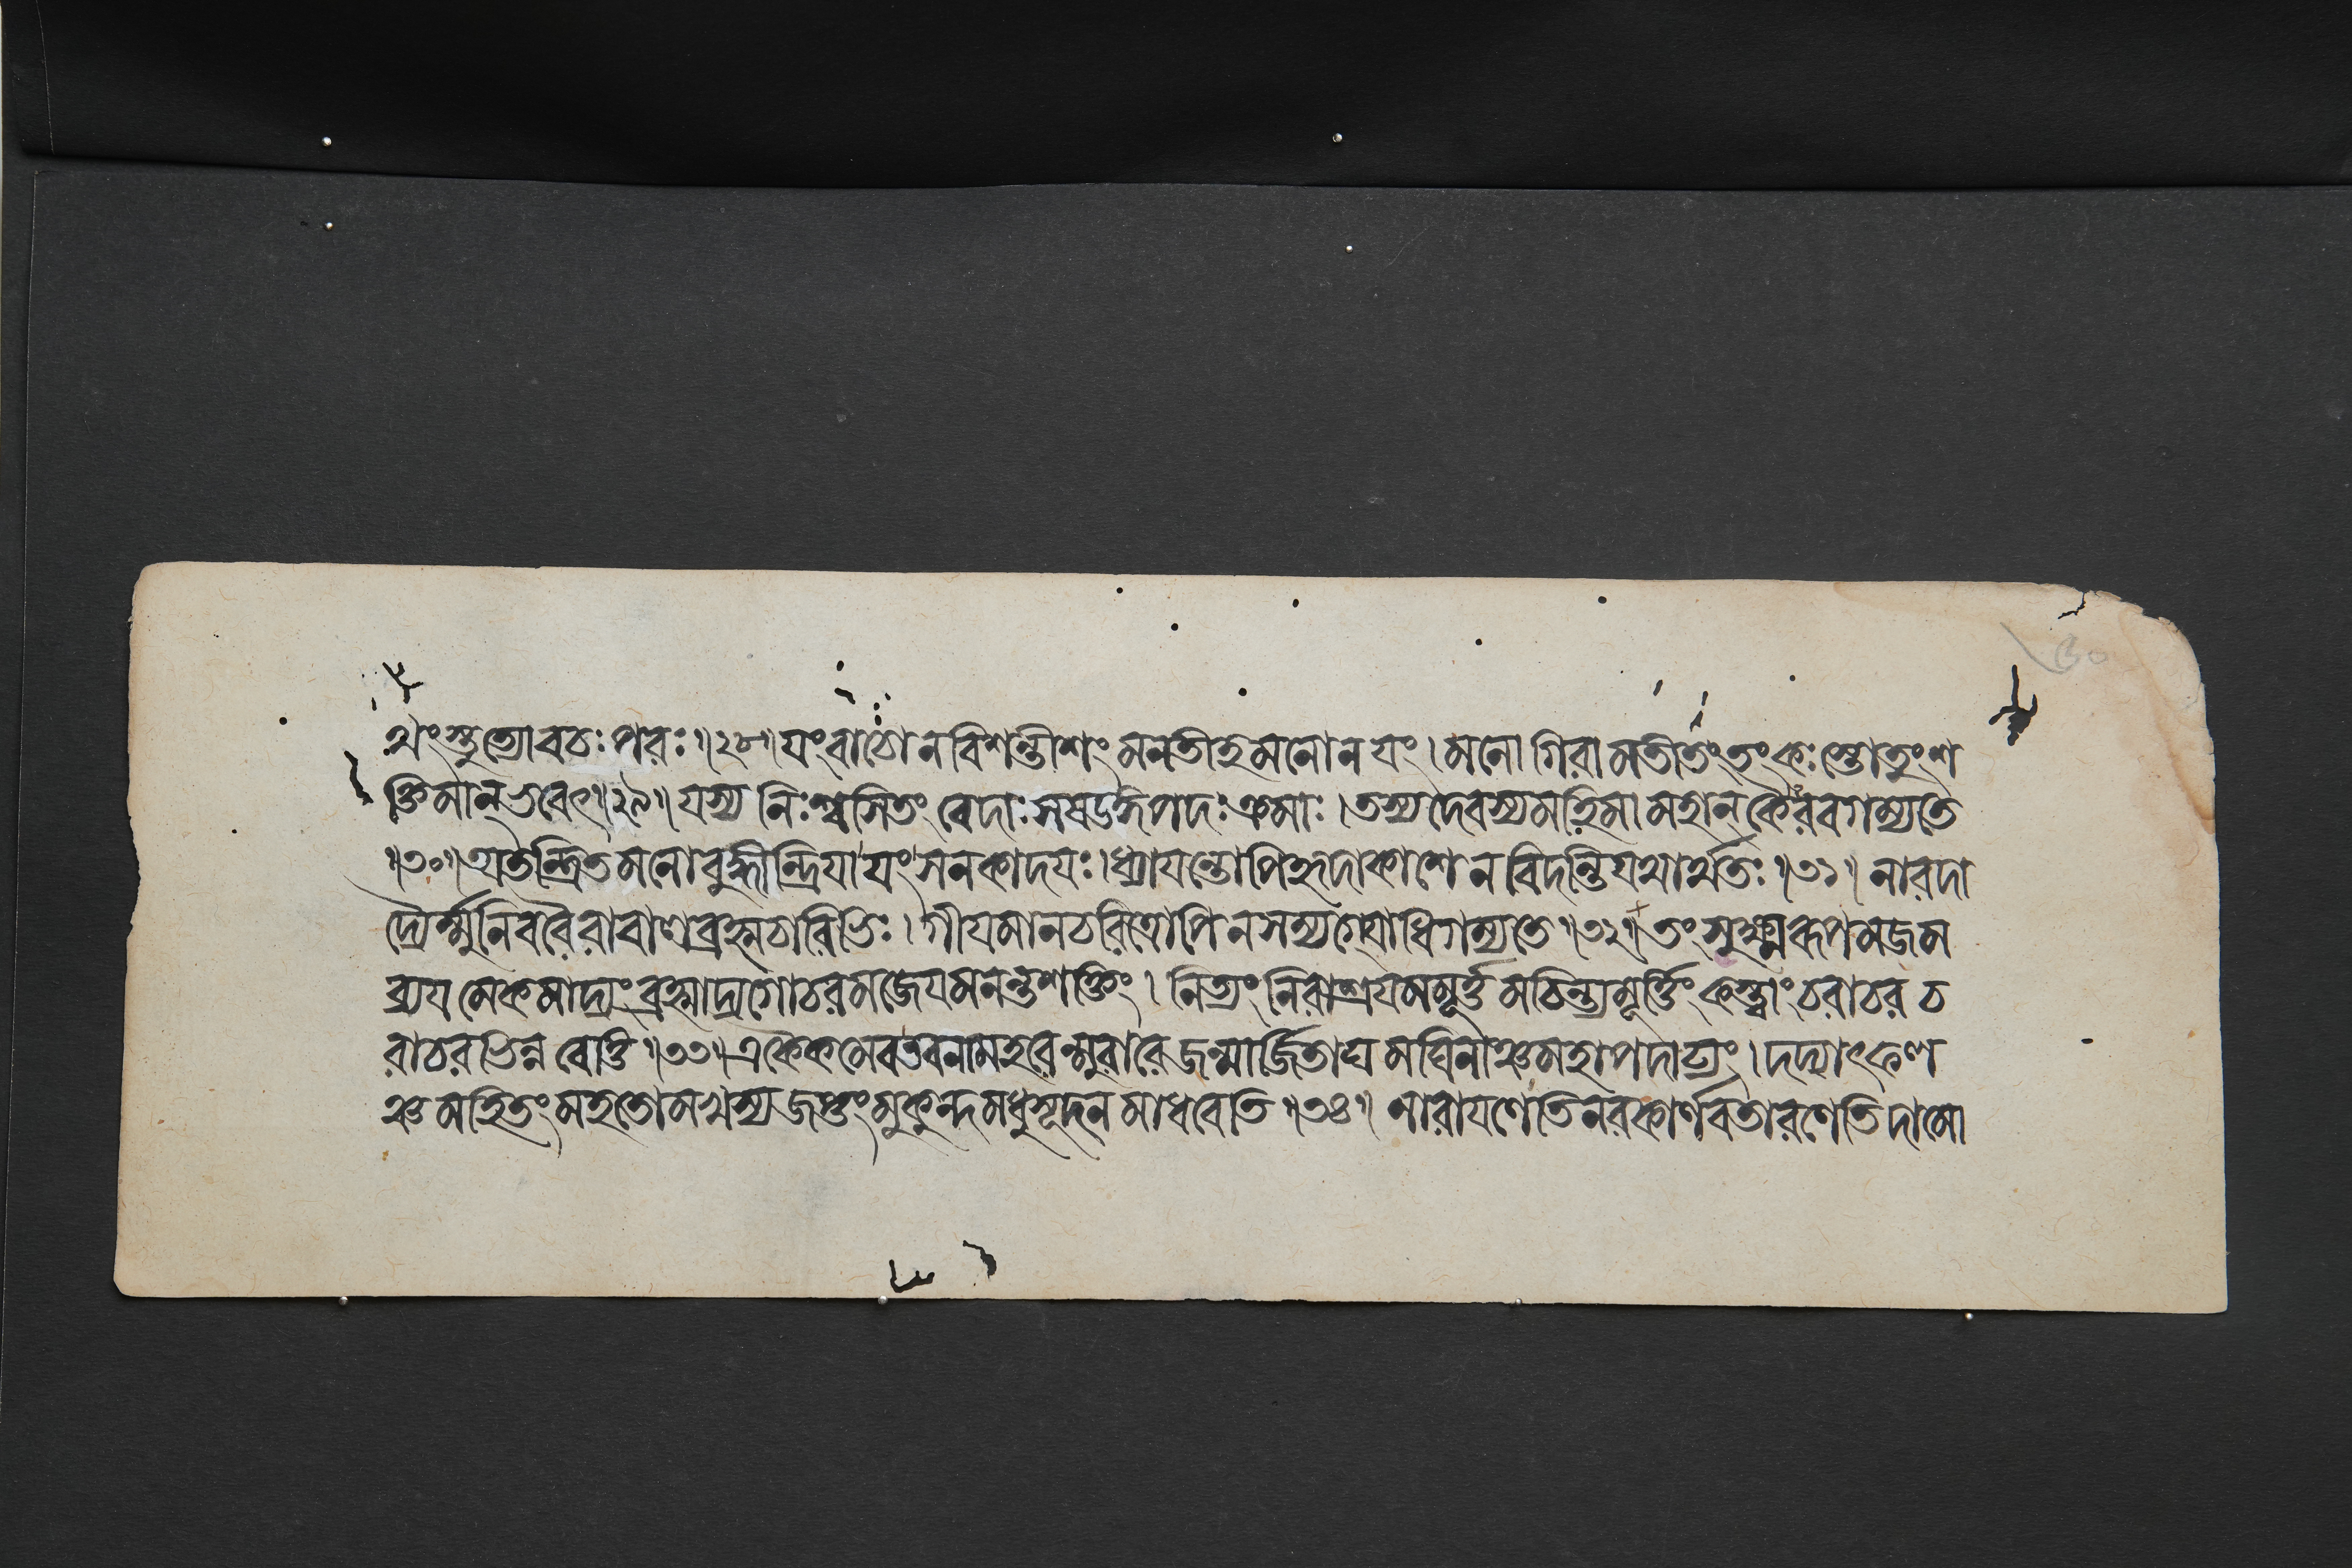 থং স্তুত্যো বচঃ পরঃ ॥২৮॥ যং বাচো ন বিশন্তীশং মনতীহ মনো ন যং । মনো গিরামতীতং তং কঃ স্তোতুং শ
ক্তিমান্ ভবেৎ ॥২৯॥ যস্য নিঃশ্বসিতং বেদাঃ সষডঙ্গপদঃ ক্রমাঃ । তস্য দেবস্য মহিমা মহান্ কৈরবগম্যতে
॥৩০॥ অতন্দ্রিতমনোবুদ্ধীন্দ্রিযা যং সনকাদযঃ । ধ্যাযন্তোপি হৃদাকাশে ন বিদন্তি যথার্থতঃ ॥৩১॥ নারদা
দ্যৈর্ম্মুনিবরৈরাবালব্রহ্মচারিভিঃ । গীযমানচরিত্রোপি ন সম্যগ্যোধিগম্যতে ॥৩২॥ তং সুক্ষ্মরূপমজম
ব্যযমেকমাদ্যং ব্রহ্মাদ্যগোচরমজেযমনন্তশক্তিং । নিত্যং নিরাশ্রযমমূর্ত্তমচিন্ত্যমূর্ত্তিং কস্ত্বাং চরাচর চ
রাচরভিন্ন বেত্তি ॥৩৩॥ একৈকমেব তব নাম হরেন্মুরারে জন্মার্জিতাঘমঘিনাঞ্চ মহাপদাঢ্যং । দদ্যাৎফল
ঞ্চ মহিতং মহতো মখস্য জপ্তং মুকুন্দ মধুসূদন মাধবেতি ॥৩৪॥ নারাযণেতি নরকার্ণবতারণেতি দামো